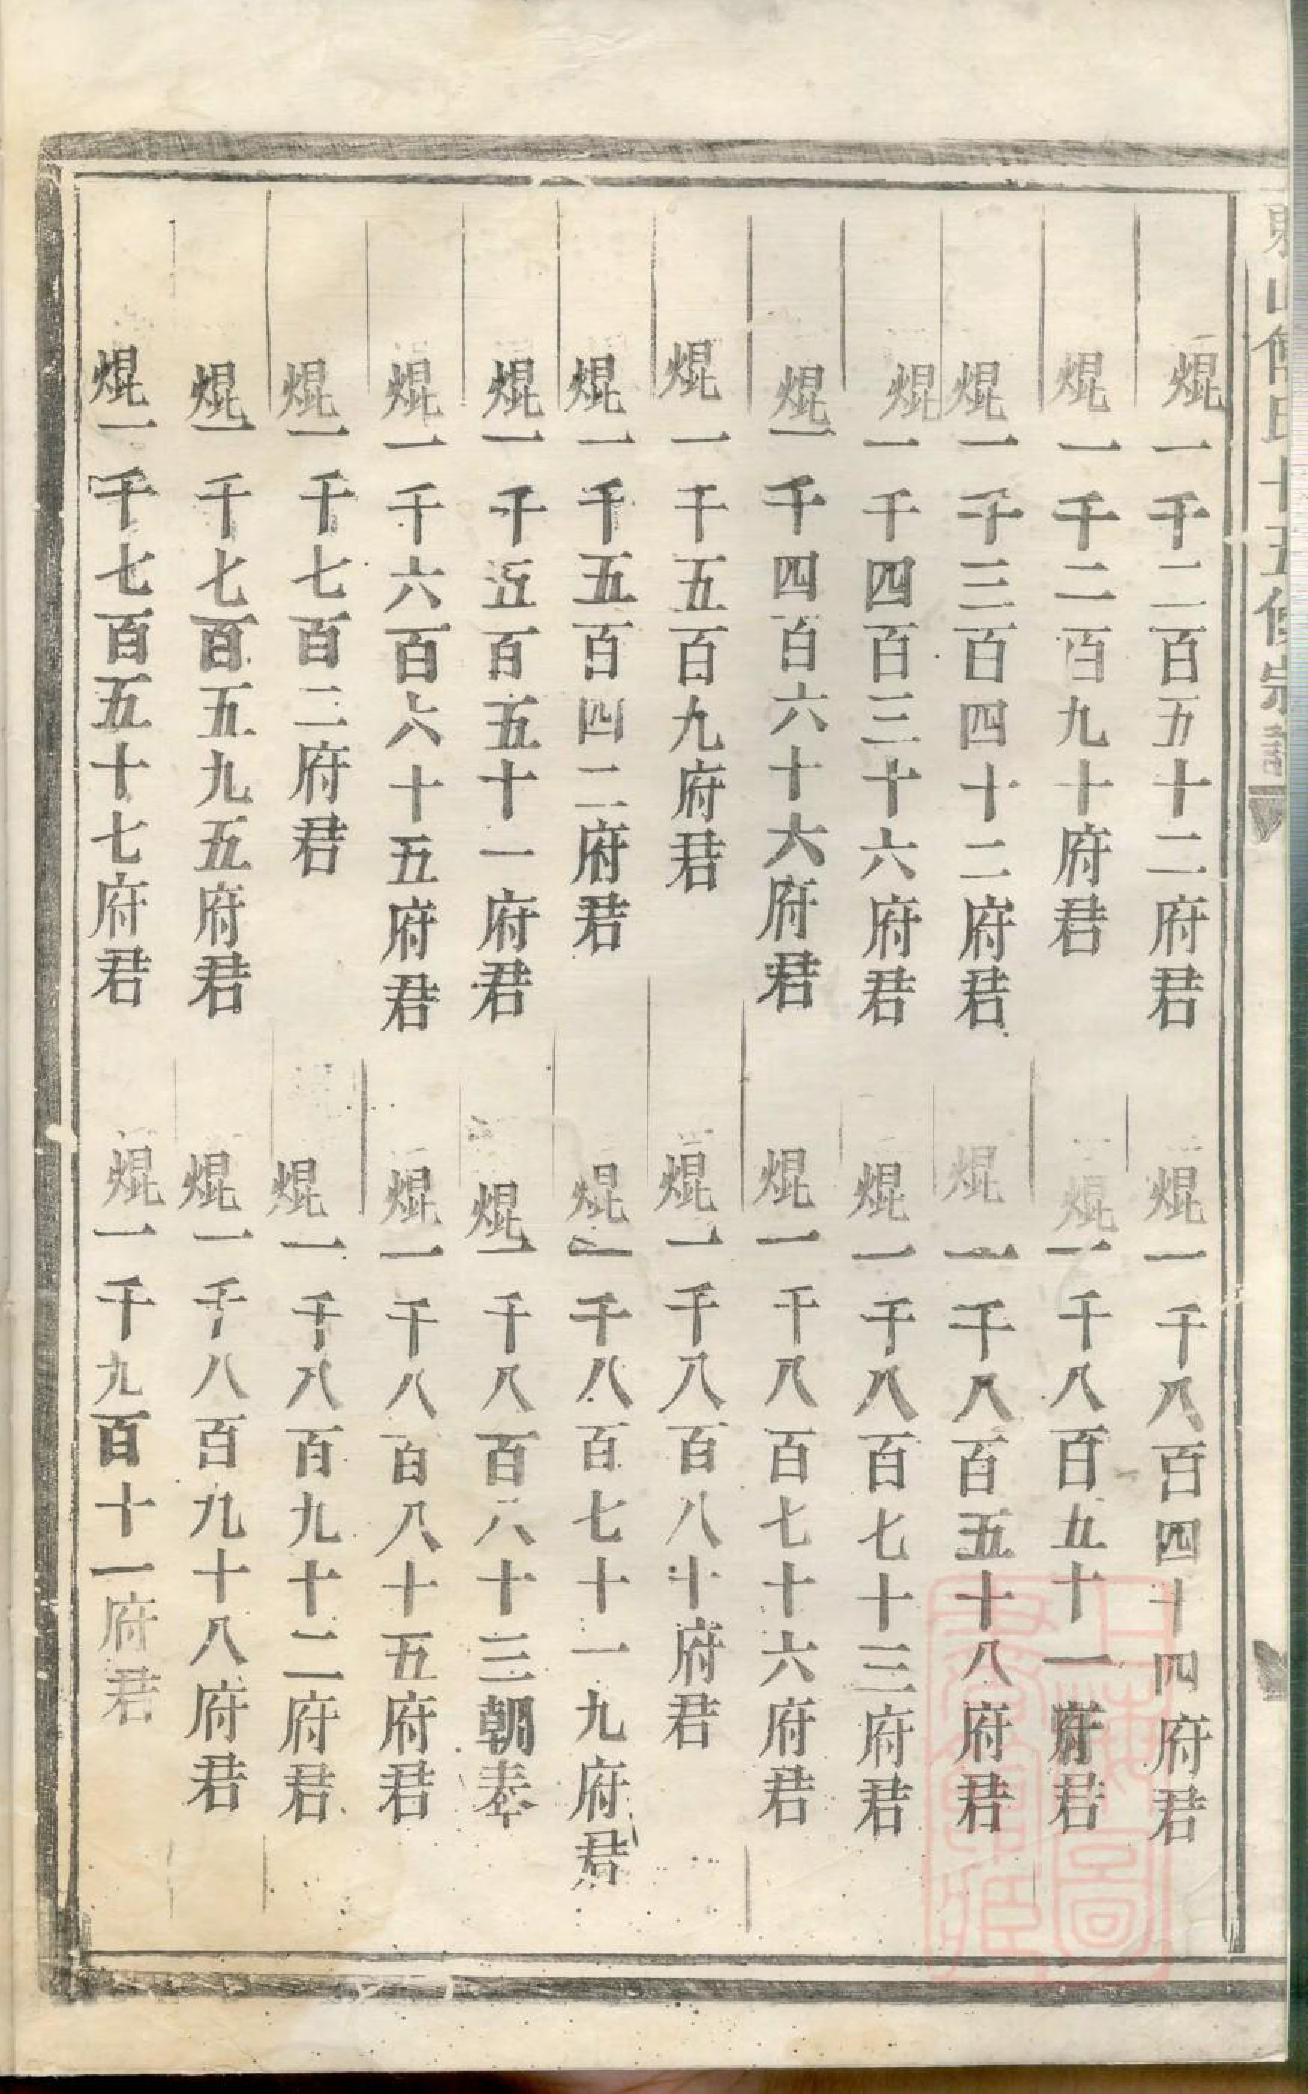 山氏十五修宗譜
焜一千二百五十二府君
焜一千二百九十府君
焜一千三百四十二府君
焜一千四百三十六府君
焜一千四百六十六府君
焜一千五百九府君
焜一千五百四二府君
焜一千五百五十一府君
焜一千六百六十五府君
焜一千七百二府君
焜一千七百五九五府君
焜一千七百五十七府君
焜一千八百四十四府君
焜一千八百五十一府君
焜一千八百五十八府君
焜一千八百七十三府君
焜一千八百七十六府君
焜一千八百八十府君
焜一千八百七十一九府君
焜一千八百六十三朝奉
焜一千八百八十五府君
焜一千八百九十二府君
焜一千八百九十八府君
焜一千九百十一府君
上海圖書館藏